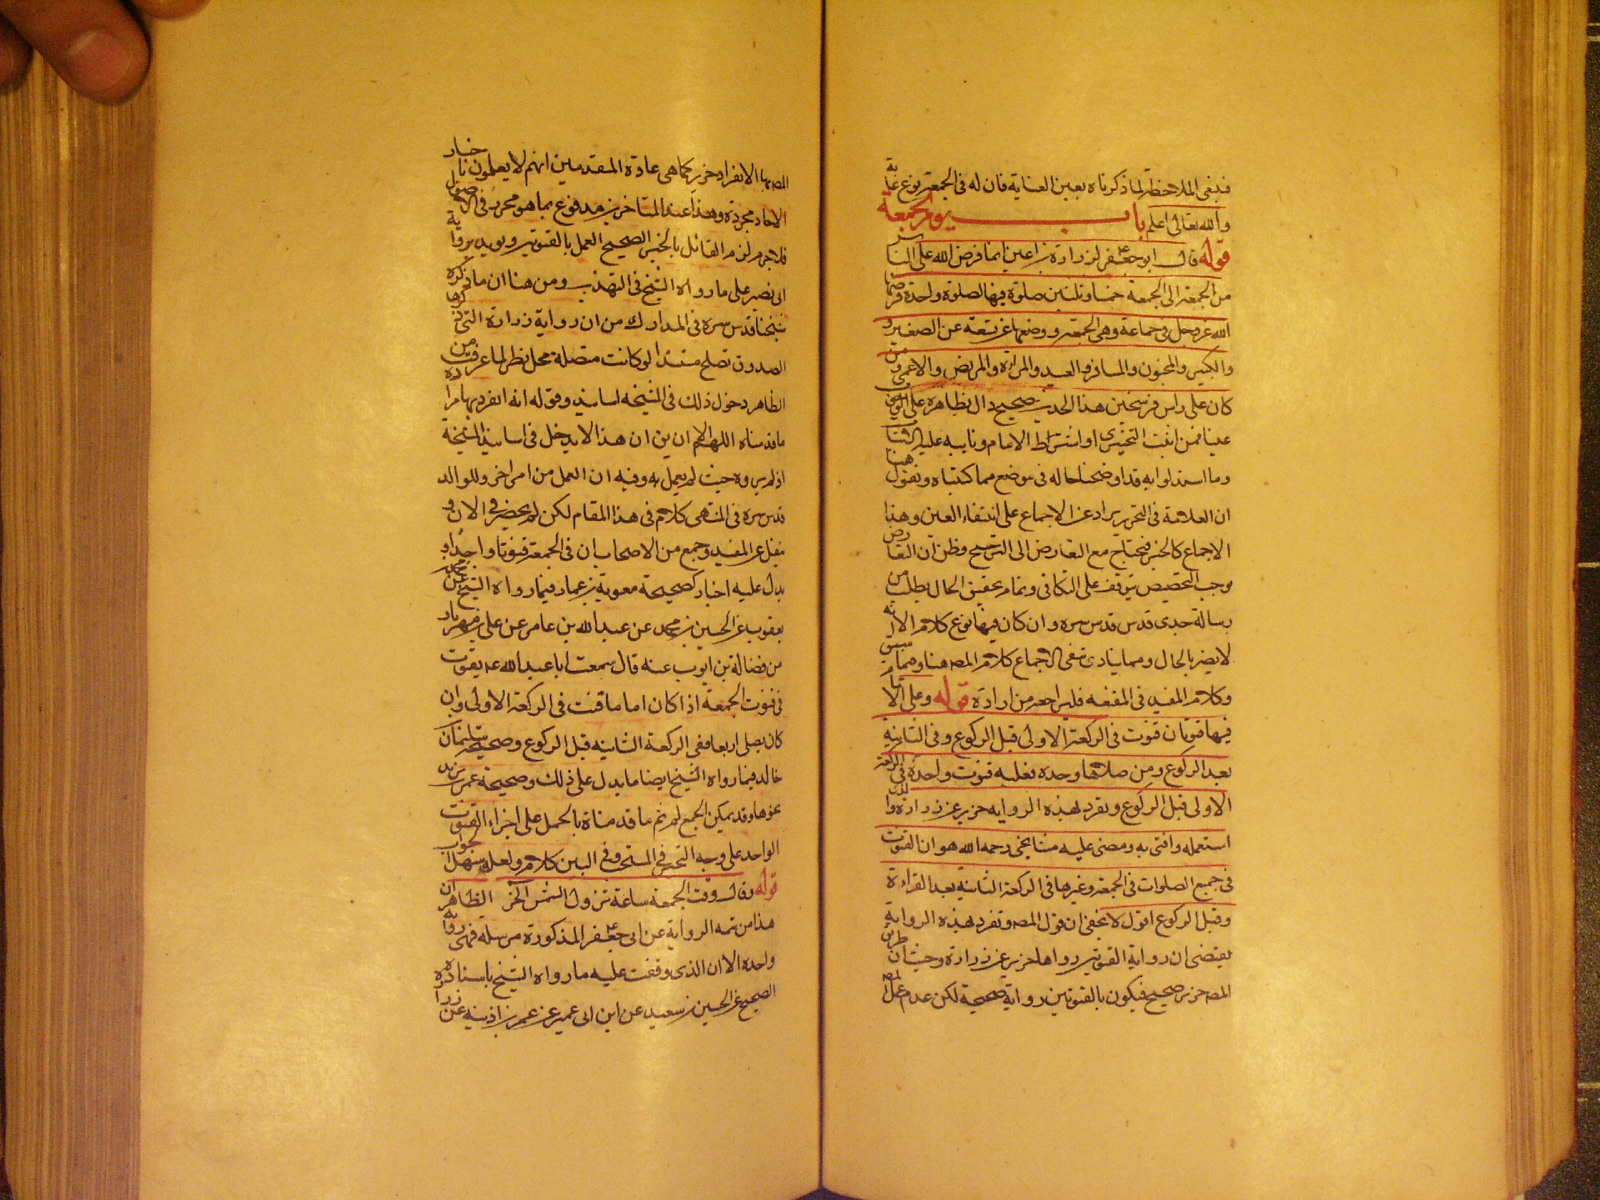 فينبغي الملاحظة لما ذكرناه بعين العناية فان له في الجمعة نوع غاية
والله تعالى اعلم باب يوم الجمعة
قوله قال ابو جعفر لزرارة بن اعين انما فرض الله على الناس
من الجمعة الى الجمعة خمسا وثلثين صلوة فيها صلوة واحدة فرضها
الله عز وجل في جماعة وهي الجمعة ووضعها عن تسعة عن الصغير و
والكبير والمجنون والمسافر والعبد والمراة والمريض والاعمى ومن
كان على راس فرسخين هذا الحديث صحيح دال بظاهره على الوجوب
عينا فمن اثبت التخيير او اشتراط الامام ونايبه عليه الاثبات
وما استدلوا به قد اوضحنا حاله في موضع مما كتبناه ونقول هنا
ان العلامة في التحرير يراد عن الاجماع على انتفاء العين وهذا
الاجماع كالخبر فيحتاج مع التعارض الى الترجيح وظن ان التعارض
يوجب التخصيص يتوقف على التكافي وتمام تحقيق الحال يطلب من
رسالة جدي قدس قدس سره وان كان فيها نوع كلام الا انه
لا يضر بالحال ومما ينادي بنفي الاجماع كلام المصه هنا وفيما سبق
وكلام المفيد في المقنعه فليراجعه من اراده قوله وعلى الامام
فيها قنوتان قنوت في الركعة الاولى قبل الركوع وفي الثانية
بعد الركوع ومن صلاها وحده فعليه قنوت واحدة في الركعة
الاولى قبل الركوع وتفرد بهذه الرواية حريز عن زرارة والذي
استعمله وافتي به ومضى عليه مشايخي رحمه الله هو ان القنوت
في جميع الصلوات في الجمعة وغيرها في الركعة الثانية بعد القراءة
وقبل الركوع اقول لا يخفى ان قول المصه وتفرد بهذه الرواية
يقتضي ان رواية القنوتين رواها حريز عن زرارة وحيث ان طريق
المصه حريز صحيح فيكون بالقنوتين رواية صحيحة لكن عدم عمل المصه
المصه بها لانفراد حريز كما هي عادة المتقدمين انهم لا يعملون باخبار
الاحاد مجردة وهذا عند المتاخرين مدفوع بما هو محرر في الاصول
فلا جرم لزم القائل بالخبر الصحيح العمل بالقنوتين ويويد برواية
ابي بصير على ما رواه الشيخ في التهذيب ومن هنا ان ما ذكره
شيخنا قدس سره في المدارك من ان رواية زرارة التي ذكرها
الصدوق تصلح مستندا لو كانت متصلة محل نظر لما عرفت من
الظاهر دخول ذلك في المشيخه لسانيد وقوله انه انفرد بها مراده
ما قدمناه اللهم الا ان ين ان هذا لا يدخل في اسانيد المشيخة
اذ لم يروه حيث لم يعمل به وفيه ان العمل من امر اخر وللوالد
قدس سره في المنتهى كلام في هذا المقام لكن لم يحضرني الان و
ينقل عن المفيد وجمع من الاصحاب ان في الجمعة قنوتا واحدا و
يدل عليه اخبار كصحيحة معوية بن عمار فيما رواه الشيخ عن محمد بن
يعقوب عن الحسين بن محمد عن عبد الله بن عامر عن علي بن مهزيار
من فضالة بن ايوب عنه قال سمعت ابا عبد الله ع يقول
في قنوت الجمعة اذا كان اماما قنت في الركعة الاولى وان
كان يصلي اربعا ففي الركعة الثانية قبل الركوع وصحيحة سليمان
خالد فيما رواه الشيخ ايضا ما يدل على ذلك وصحيحة عمر بن يزيد
نحوها وقد يمكن الجمع لو لم يتم ما قدمناه بالحمل على اجزاء القنوت
الواحد على وجه التخيير في المستحب وفي البين كلام ولعله سهل
قوله وقال وقت الجمعة ساعة تزول الشمس الخ الظاهر ان
هذا من تتمه الرواية عن ابي جعفر المذكورة مرسله فهي رواية
واحدة الا ان الذي وقفت عليه ما رواه الشيخ باسناده
الصحيح عن الحسين بن سعيد عن ابن ابي عمير عن عمر بن اذينه عن زرارة